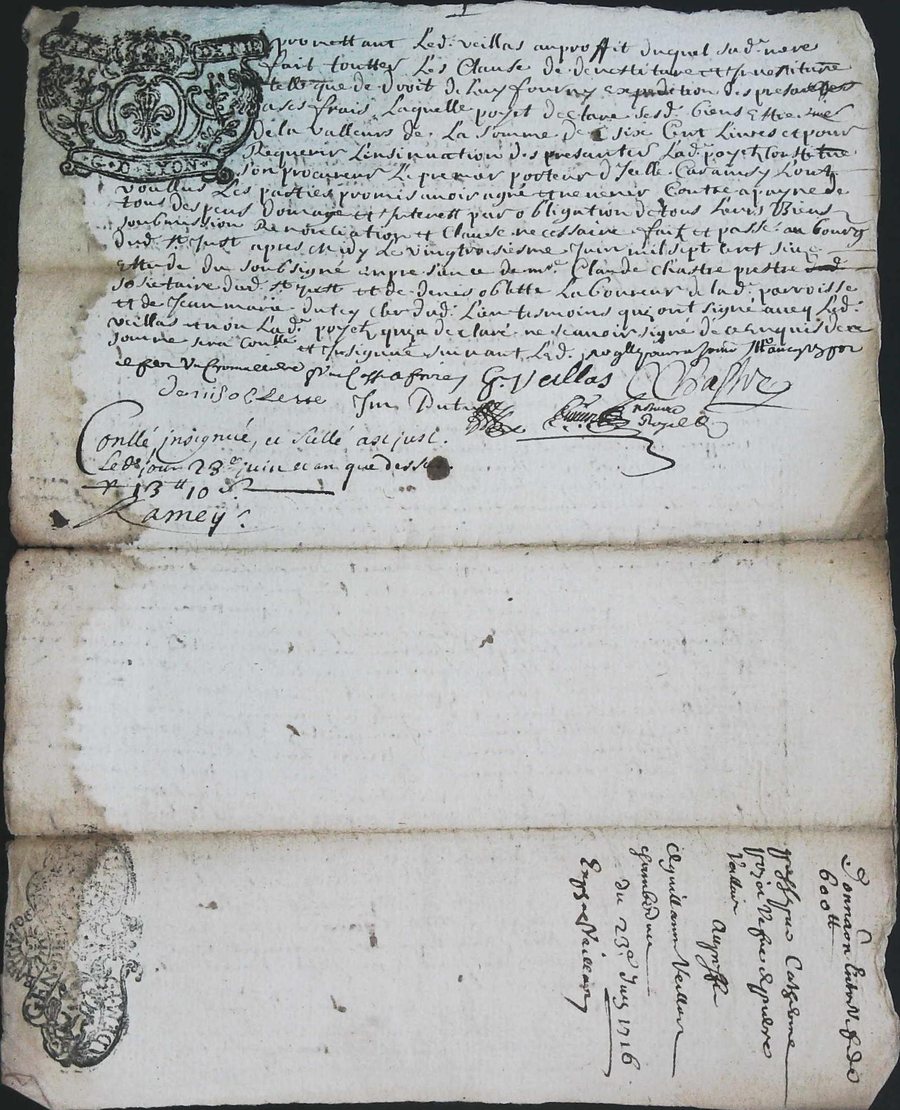 G. D. LYON
promettant Led. veillas au proffit duquel sad. mere
fait touttes Les Clause de devestiture et Investiture
telle que de droit de luy fournir expedition des presantes
a ses frais Laquelle poyet declare sesd. biens Estre
de la valleurs de La somme de six Cent Livres et pour
Requerir L'insinuation des presantes Lad. poyet Constitue
son procureur Le premier porteur d'Icelle Car ainsy L'ont
voullus Les parties promis avoir agré et ne venir Contre a payne de
tous despens Domage et Interest par obligation de tous Leurs Biens
soubmission Renonciation et Clause necessaire fait et passé au bourg
dud. St Just apres midy Le vingtroisiesme Juin mil sept cent seize
Estude du soubsigné en presance de mre Claude Chastre prestre
sosietaire dud. St Just et de denis oblette Laboureur de lad. parroisse
et de Jean marie dutey clerc dud. Lieu tesmoins qui ont signé avecq Led.
veillas et non Lad. poyet qui a declaré ne scavoir signé de ce Enquis
somme sera Conllé et Insignué suivant L'ed.
G. Veillas Chastre
denis oblette Jm Dutey
notaire Royal
Conllé, insignué, et scellé a st just.
Led. jour 23e juin et an que dessus.
13 tt 10 s
Ramey
Donnaon
600 tt
Catherine
poyet vefve
Veillas
A proffit
de guillaume Veillas
du 23e Juin 1716
Veillas